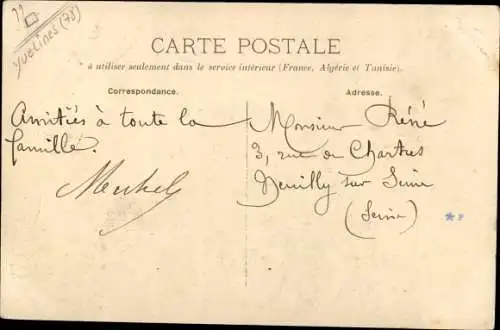 Yvelines (78)
CARTE POSTALE
à utiliser seulement dans le service intérieur (France, Algérie et Tunisie).
Correspondance.
Amitiés à toute la
famille.
Adresse.
Monsieur Réné
3, rue de Chartres
Neuilly sur Seine
(Seine)